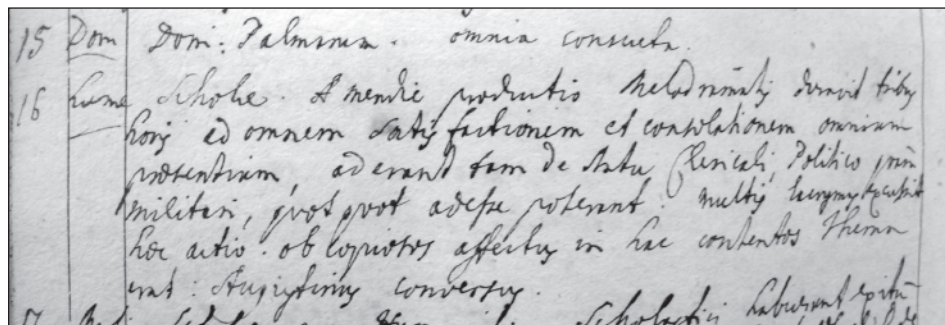 15 Dom Dom: Palmarum. omnia consueta.
16 Lunae Scholae. A meridie productio Melodramatis duravit tribus
horis ad omnem satisfactionem et consolationem omnium
praesentium, aderant tam de statu Clericali, Politico quam
militari, quotquot adesse poterant: multis lacrymas expressit
haec actio. ob copiosos affectus in hac contentos Thema
erat: Augustinus conversus.
17 Scholastici habuerunt